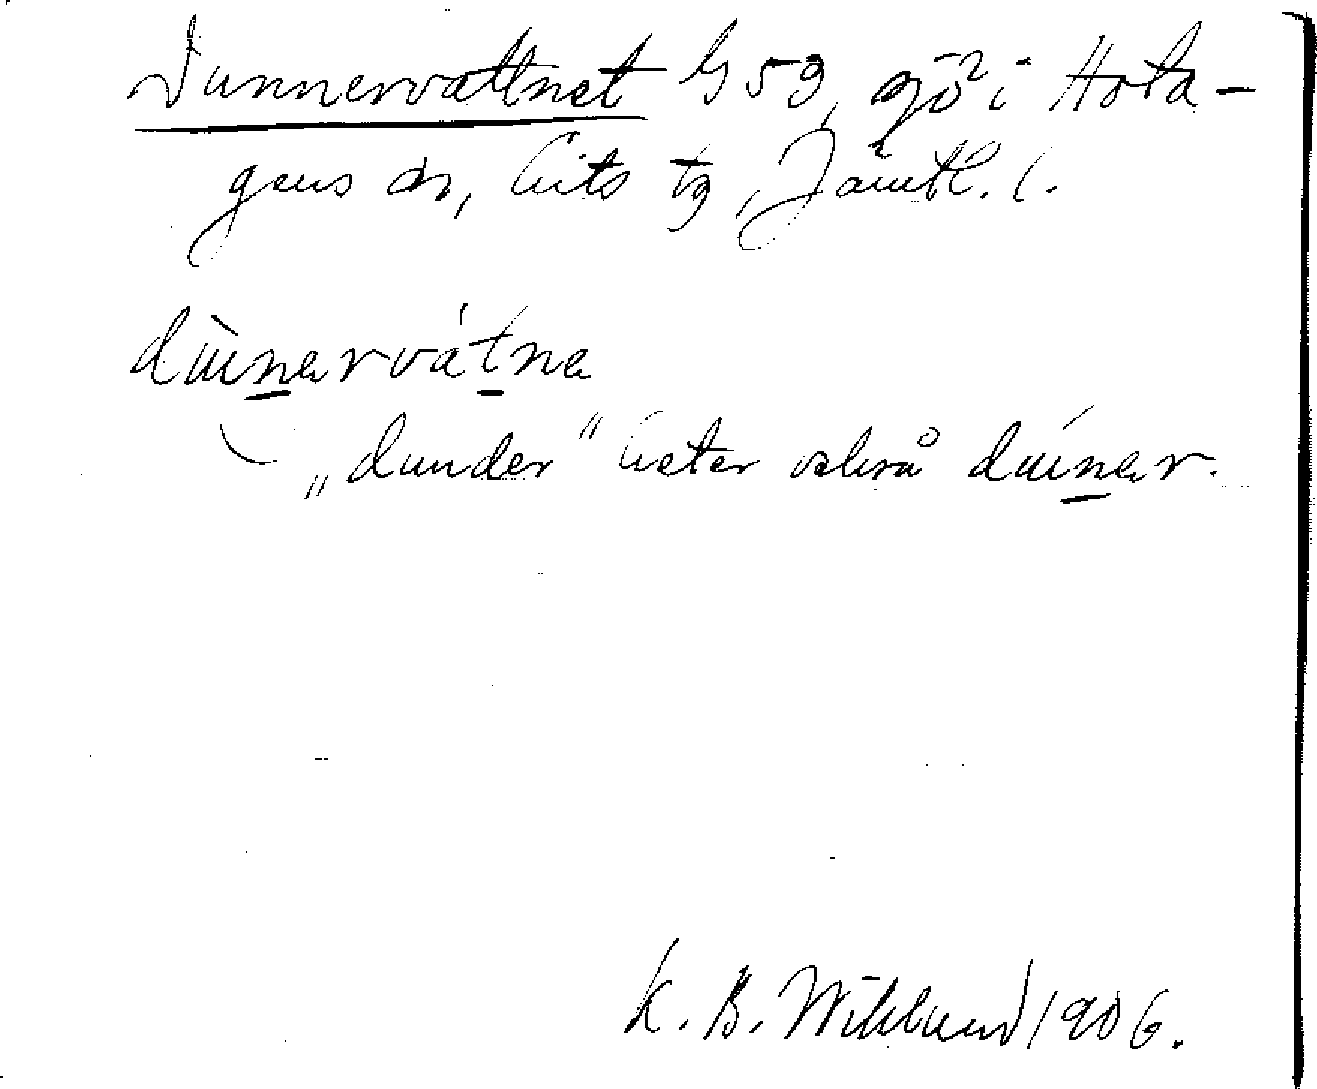 Dunnervattnet b 59, sjö i Hota-
gens sn, Lits tg, Jämtl. l.
dùnarvátna
„dunder" heter också dúnar.
K. B. Wiklund 1906.